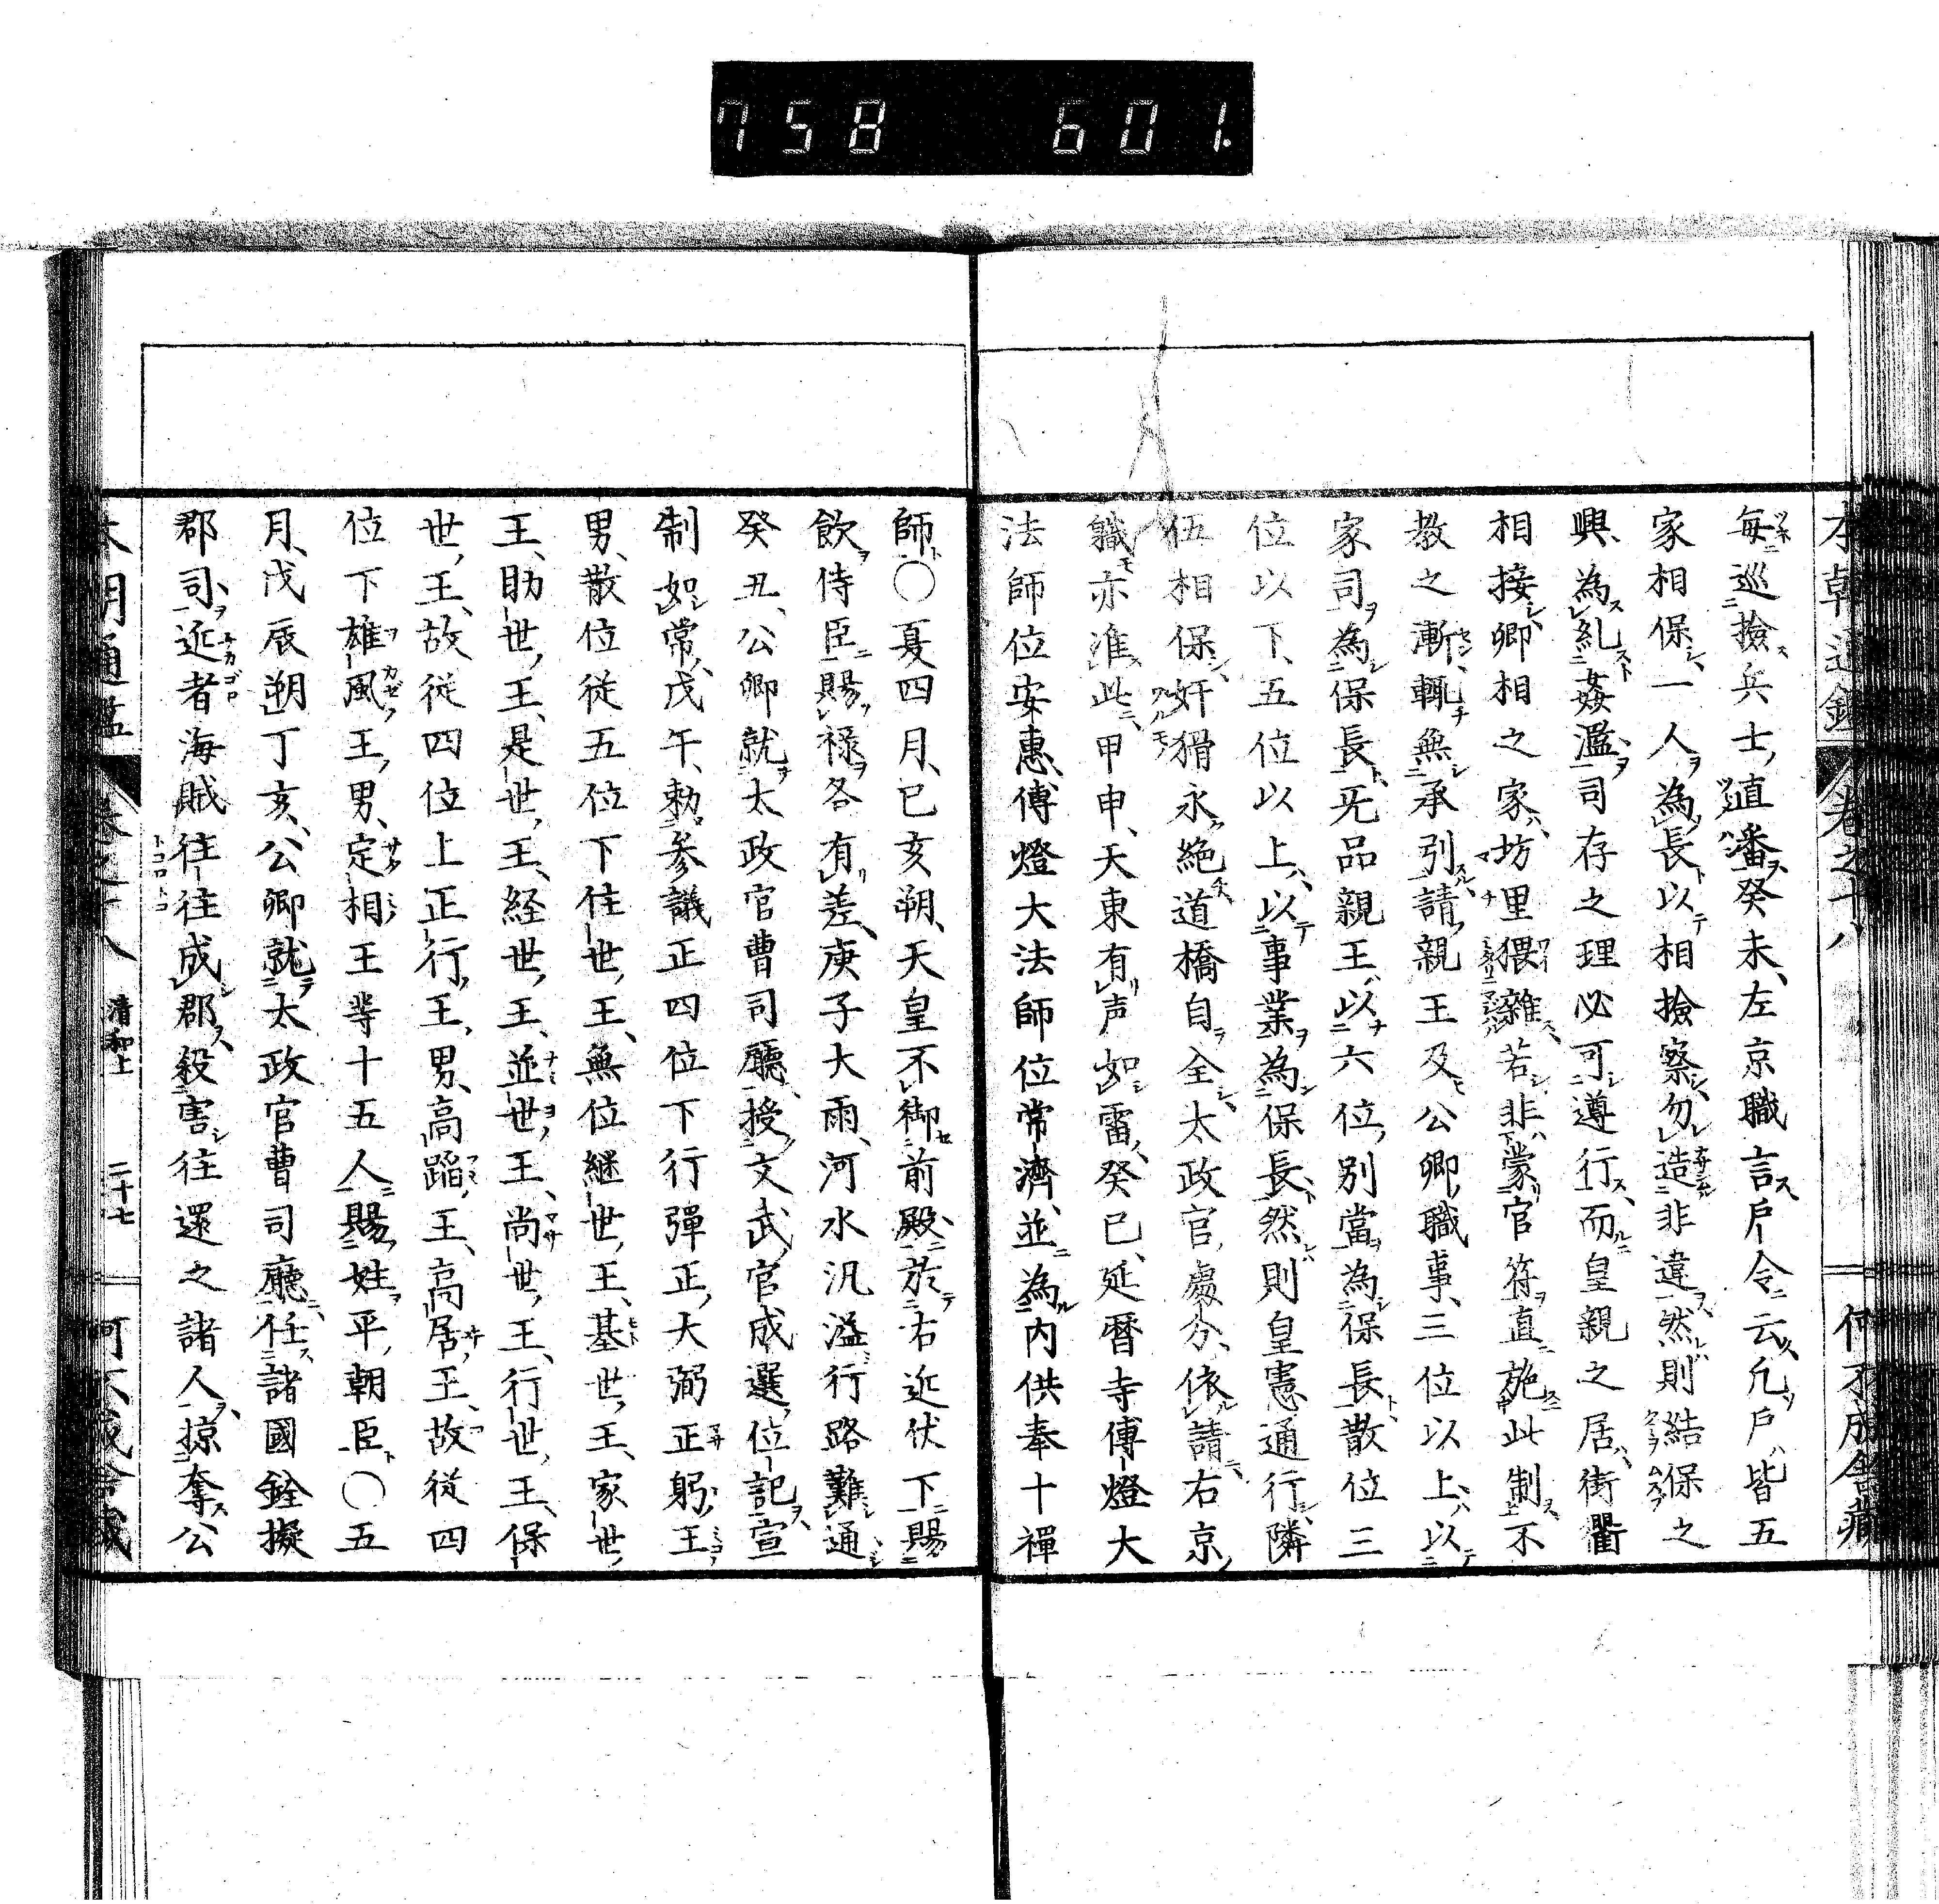 758 601.
本朝通鑑 卷之十八 何不成舎藏
毎巡撿兵士直潘癸未左京職言戶令云凡戶皆五
家相保一人為長以相撿察勿造非違然則結保之
興為糺姦濫司存之理必可遵行而皇親之居街衢
相接卿相之家坊里猥雜若非蒙官符直施此制不
教之漸輒無承引請親王及公卿職事三位以上以
家司為保長无品親王以六位別當為保長散位三
位以下五位以上以事業為保長然則皇憲通行隣
伍相保奸猾永絶道橋自全太政官處分依請右京
職亦准此甲申天東有声如雷癸巳延暦寺傳燈大
法師位安惠傳燈大法師位常濟並為内供奉十禪
師○夏四月已亥朔天皇不御前殿於右近伏下賜
飲侍臣賜禄各有差庚子大雨河水汎溢行路難通
癸丑公卿就太政官曹司廳授文武官成選位記宣
制如常戊午勅参議正四位下行彈正大弼正躬王
男散位従五位下住世王無位継世王基世王家世
王助世王是世王経世王並世王尚世王行世王保
世王故従四位上正行王男高蹈王高居王故従四
位下雄風王男定相王等十五人賜姓平朝臣○五
月戊辰朔丁亥公卿就太政官曹司廳任諸國銓擬
郡司近者海賊往往成郡殺害往還之諸人掠奪公
本朝通鑑 卷之十八 清和上 二十七 何不成舎藏